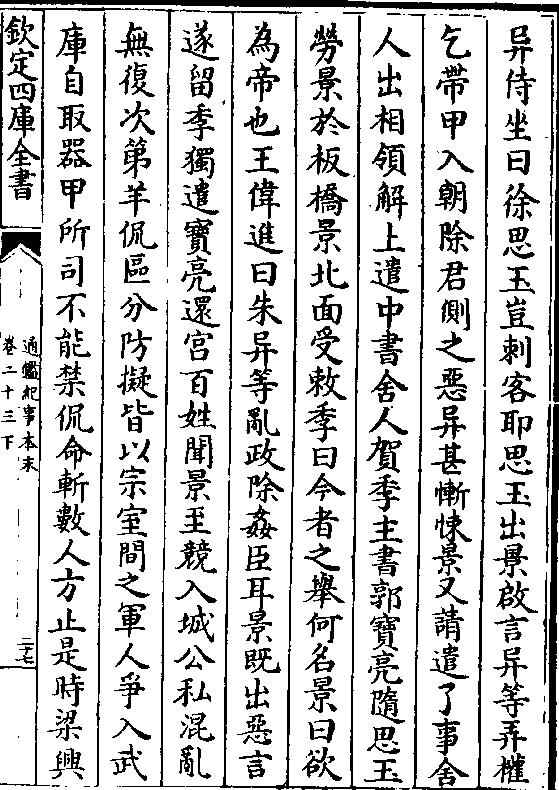 异侍坐曰徐思玉豈刺客耶思玉出景啟言异等弄權
乞帶甲入朝除君側之惡异甚慚悚景又請遣了事舍
人出相領解上遣中書舍人賀季主書郭寶亮隨思玉
勞景於板橋景北面受敕季曰今者之舉何名景曰欲
為帝也王偉進曰朱异等亂政除姦臣耳景既出惡言
遂留季獨遣寶亮還宮百姓聞景至競入城公私混亂
無復次第羊侃區分防擬皆以宗室間之軍人爭入武
庫自取器甲所司不能禁侃命斬數人方止是時梁興
欽定四庫全書
通鑑紀事本末
卷二十三下
二十七